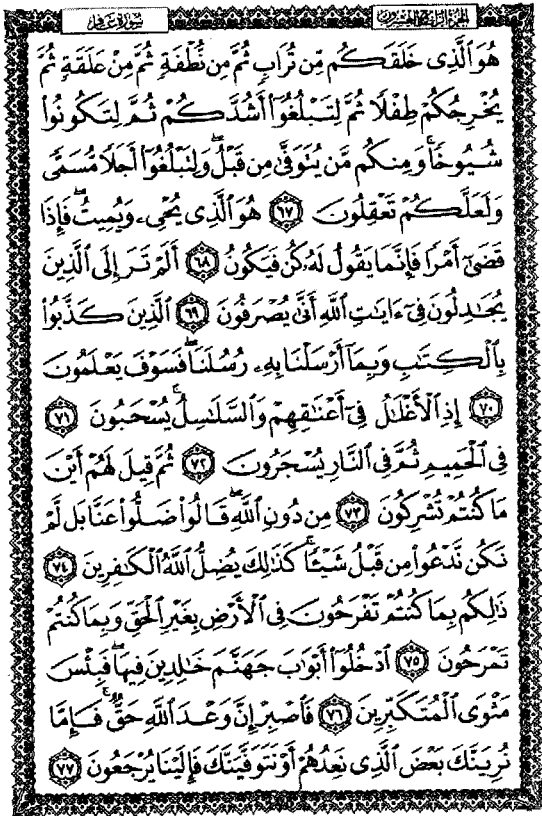 سُورَةُ غَافِرٍ
الجُزْءُ الرَّابِعُ وَالْعِشْرُونَ
هُوَ ٱلَّذِى خَلَقَكُم مِّن تُرَابٍ ثُمَّ مِن نُّطْفَةٍ ثُمَّ مِنْ عَلَقَةٍ ثُمَّ
يُخْرِجُكُمْ طِفْلًا ثُمَّ لِتَبْلُغُوٓا۟ أَشُدَّكُمْ ثُمَّ لِتَكُونُوا۟
شُيُوخًا ۚ وَمِنكُم مَّن يُتَوَفَّىٰ مِن قَبْلُ ۖ وَلِتَبْلُغُوٓا۟ أَجَلًا مُّسَمًّى
وَلَعَلَّكُمْ تَعْقِلُونَ ٦٧ هُوَ ٱلَّذِى يُحْىِۦ وَيُمِيتُ ۖ فَإِذَا
قَضَىٰٓ أَمْرًا فَإِنَّمَا يَقُولُ لَهُۥ كُن فَيَكُونُ ٦٨ أَلَمْ تَرَ إِلَى ٱلَّذِينَ
يُجَٰدِلُونَ فِىٓ ءَايَٰتِ ٱللَّهِ أَنَّىٰ يُصْرَفُونَ ٦٩ ٱلَّذِينَ كَذَّبُوا۟
بِٱلْكِتَٰبِ وَبِمَآ أَرْسَلْنَا بِهِۦ رُسُلَنَا ۖ فَسَوْفَ يَعْلَمُونَ
٧٠ إِذِ ٱلْأَغْلَٰلُ فِىٓ أَعْنَٰقِهِمْ وَٱلسَّلَٰسِلُ يُسْحَبُونَ ٧١
فِى ٱلْحَمِيمِ ثُمَّ فِى ٱلنَّارِ يُسْجَرُونَ ٧٢ ثُمَّ قِيلَ لَهُمْ أَيْنَ
مَا كُنتُمْ تُشْرِكُونَ ٧٣ مِن دُونِ ٱللَّهِ ۖ قَالُوا۟ ضَلُّوا۟ عَنَّا بَل لَّمْ
نَكُن نَّدْعُوا۟ مِن قَبْلُ شَيْـًٔا ۚ كَذَٰلِكَ يُضِلُّ ٱللَّهُ ٱلْكَٰفِرِينَ ٧٤
ذَٰلِكُم بِمَا كُنتُمْ تَفْرَحُونَ فِى ٱلْأَرْضِ بِغَيْرِ ٱلْحَقِّ وَبِمَا كُنتُمْ
تَمْرَحُونَ ٧٥ ٱدْخُلُوٓا۟ أَبْوَٰبَ جَهَنَّمَ خَٰلِدِينَ فِيهَا ۖ فَبِئْسَ
مَثْوَى ٱلْمُتَكَبِّرِينَ ٧٦ فَٱصْبِرْ إِنَّ وَعْدَ ٱللَّهِ حَقٌّ ۚ فَإِمَّا
نُرِيَنَّكَ بَعْضَ ٱلَّذِى نَعِدُهُمْ أَوْ نَتَوَفَّيَنَّكَ فَإِلَيْنَا يُرْجَعُونَ ٧٧